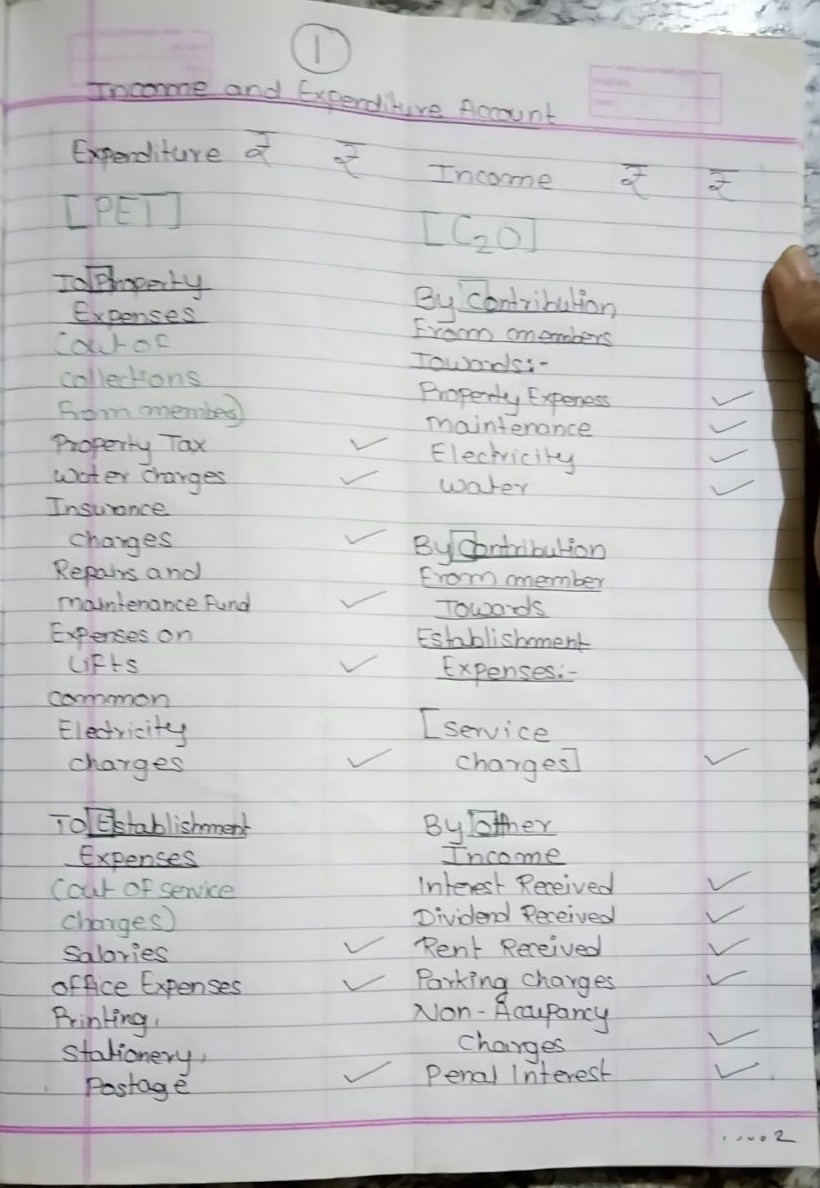 1
Income and Expenditure Account
Expenditure ₹ ₹
[PET]
To Property
Expenses
(out of
collections
from member)
Property Tax ✓
Water charges ✓
Insurance
charges ✓
Repairs and
maintenance Fund ✓
Expenses on
Lifts ✓
common
Electricity
charges ✓
To Establishment
Expenses
(out of service
charges)
Salaries ✓
office Expenses ✓
Printing,
Stationery,
Postage ✓
Income ₹ ₹
[C2O]
By Contribution
From members
Towards:-
Property Expeness ✓
maintenance ✓
Electricity ✓
water ✓
By Contribution
From member
Towards
Establishment
Expenses:-
[service
charges] ✓
By other
Income
Interest Received ✓
Dividend Received ✓
Rent Received ✓
Parking charges ✓
Non-Accupancy
Charges ✓
Penal Interest ✓
....2